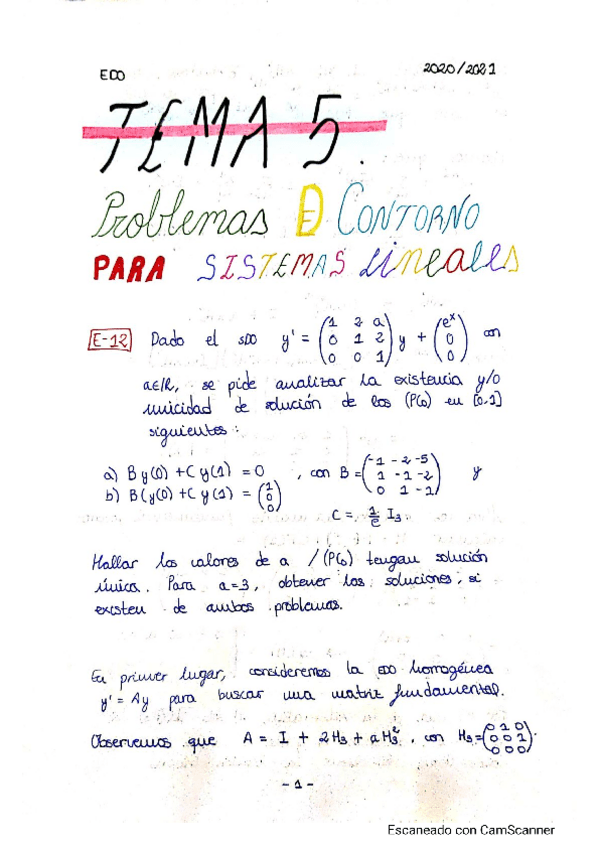 EDO 2020/2021
TEMA 5.
Problemas DE CONTORNO
PARA SISTEMAS Lineales
E-12 Dado el SDO y' = (1 2 a; 0 1 2; 0 0 1) y + (e^x; 0; 0) con
a∈ℝ, se pide analizar la existencia y/o
unicidad de solución de los (PC) en [0,1]
siguientes:
a) B y(0) + C y(1) = 0 , con B = (-1 -2 -5; 1 -1 -2; 0 1 -1) y
b) B y(0) + C y(1) = (1; 0; 0)
C = 1/e I₃
Hallar los valores de a / (PC) tengan solución
única. Para a=3, obtener las soluciones, si
existen de ambos problemas.
En primer lugar, consideremos la EDO homogénea
y' = Ay para buscar una matriz fundamental.
Observemos que A = I + 2H₃ + aH₃², con H₃ = (0 1 0; 0 0 1; 0 0 0).
- 1 -
Escaneado con CamScanner